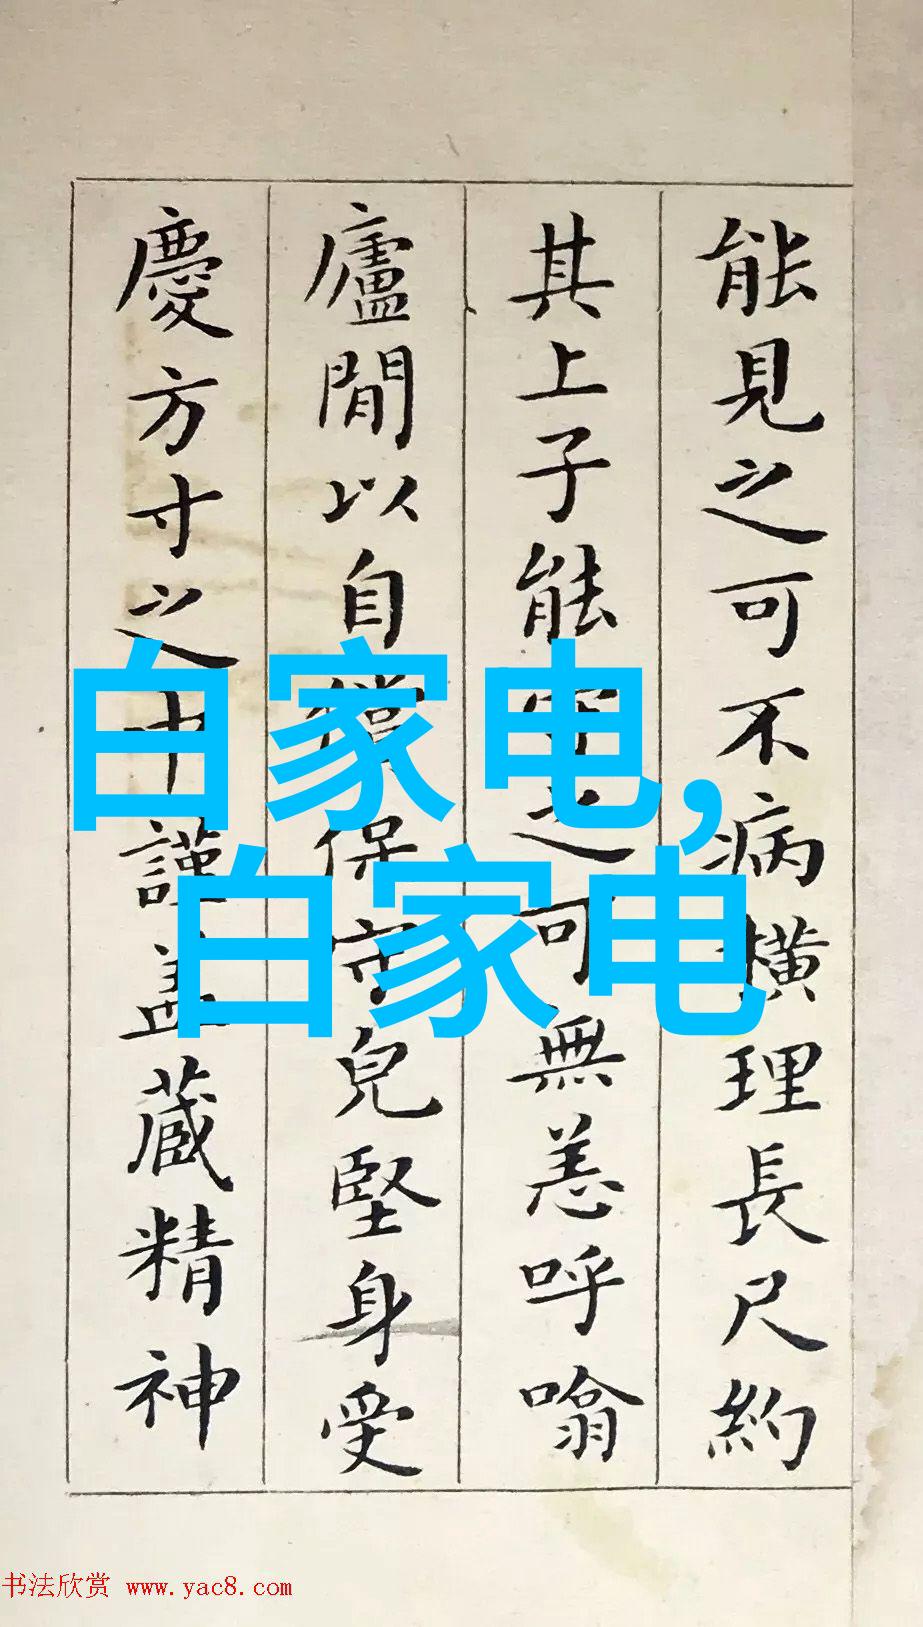 能見之可不病橫理長尺約
其上子能守之可無恙呼噏
廬間以自償保守兒堅身受
慶方寸之中謹盖蔵精神
白家电,
白家电
书法欣赏 www.yac8.com